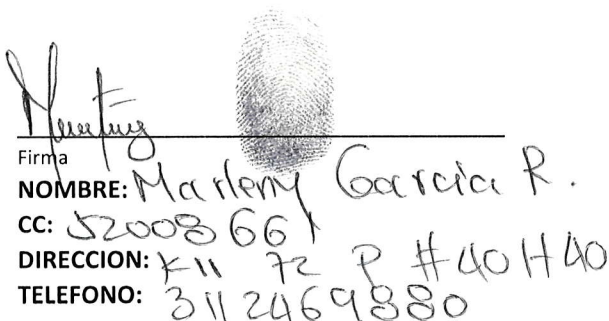 Firma
NOMBRE: Marleny Garcia R.
CC: 52008661
DIRECCION: K11 72 P #40H40
TELEFONO: 3112469880